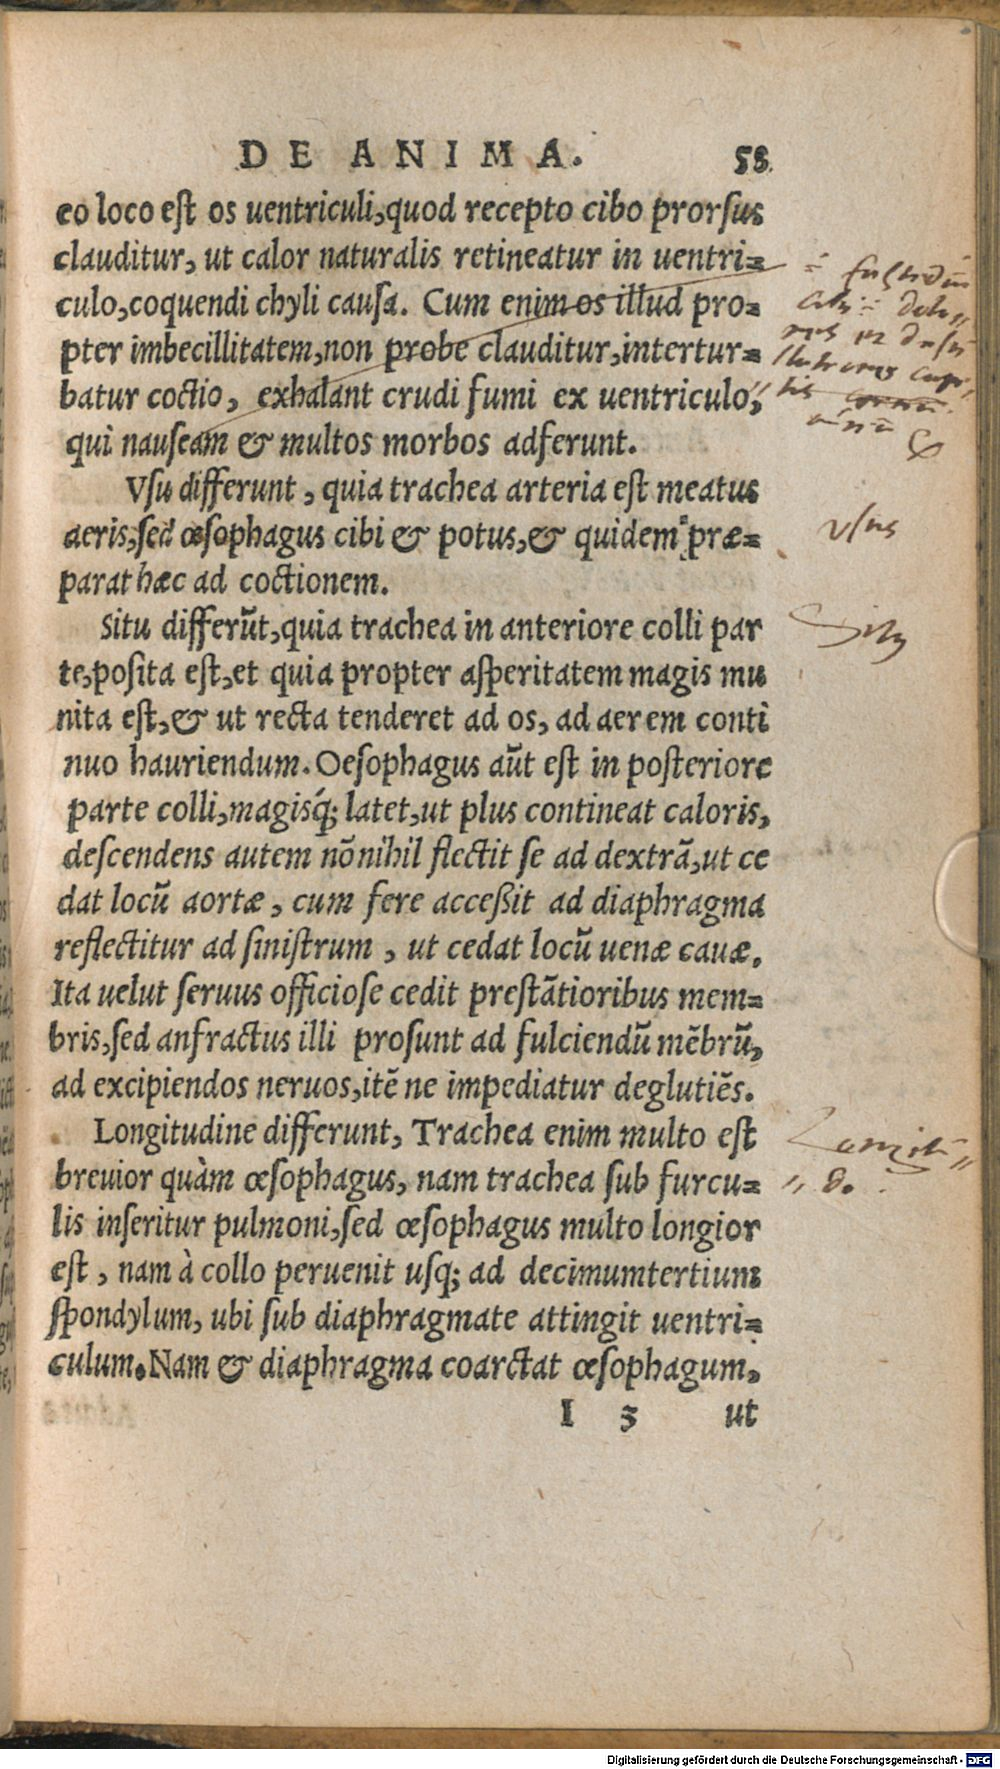 DE ANIMA. 58
eo loco eſt os uentriculi,quod recepto cibo prorſus
clauditur, ut calor naturalis retineatur in uentri=
culo,coquendi chyli cauſa. Cum enim os illud pro=
pter imbecillitatem,non probe clauditur,intertur=
batur coctio, exhalant crudi fumi ex uentriculo,
qui nauſeam & multos morbos adferunt.
Vſu differunt, quia trachea arteria eſt meatus
aeris,ſed œſophagus cibi & potus,& quidem præ=
parat hæc ad coctionem.
vſus
Situ differũt,quia trachea in anteriore colli par
te,poſita eſt,et quia propter aſperitatem magis mu
nita eſt,& ut recta tenderet ad os, ad aerem conti
nuo hauriendum. Oeſophagus aũt eſt in poſteriore
parte colli,magisq́; latet,ut plus contineat caloris,
deſcendens autem nõnihil flectit ſe ad dextrã,ut ce
dat locũ aortæ, cum fere acceßit ad diaphragma
reflectitur ad ſiniſtrum, ut cedat locũ uenæ cauæ.
Ita uelut ſeruus officioſe cedit preſtãtioribus mem=
bris,ſed anfractus illi proſunt ad fulciendũ mẽbrũ,
ad excipiendos neruos,itẽ ne impediatur deglutiẽs.
Longitudine differunt, Trachea enim multo eſt
breuior quàm œſophagus, nam trachea ſub furcu=
lis inſeritur pulmoni,ſed œſophagus multo longior
eſt, nam à collo peruenit uſq; ad decimumtertium
ſpondylum, ubi ſub diaphragmate attingit uentri=
culum. Nam & diaphragma coarctat œſophagum,
I 3 ut
Digitalisierung gefördert durch die Deutsche Forschungsgemeinschaft - DFG